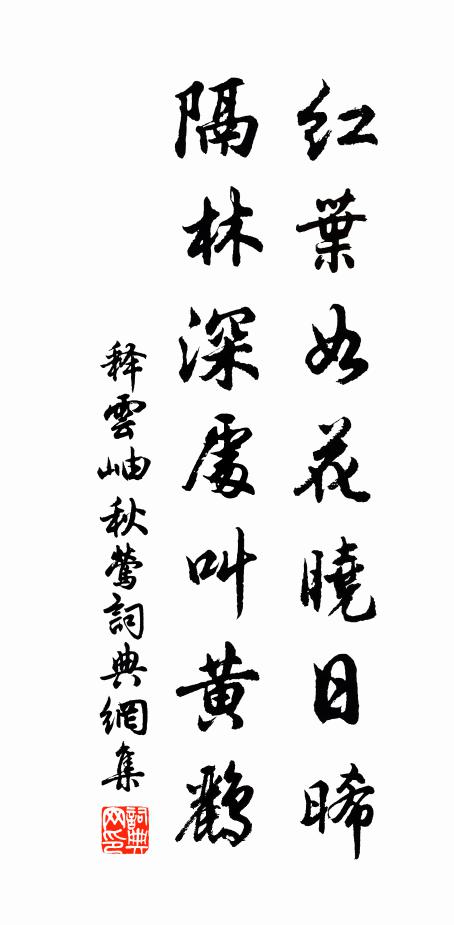 紅葉如花曉日晞
隔林深處叫黃鸝
释雲岫秋鶯詞典網集
詞典网印